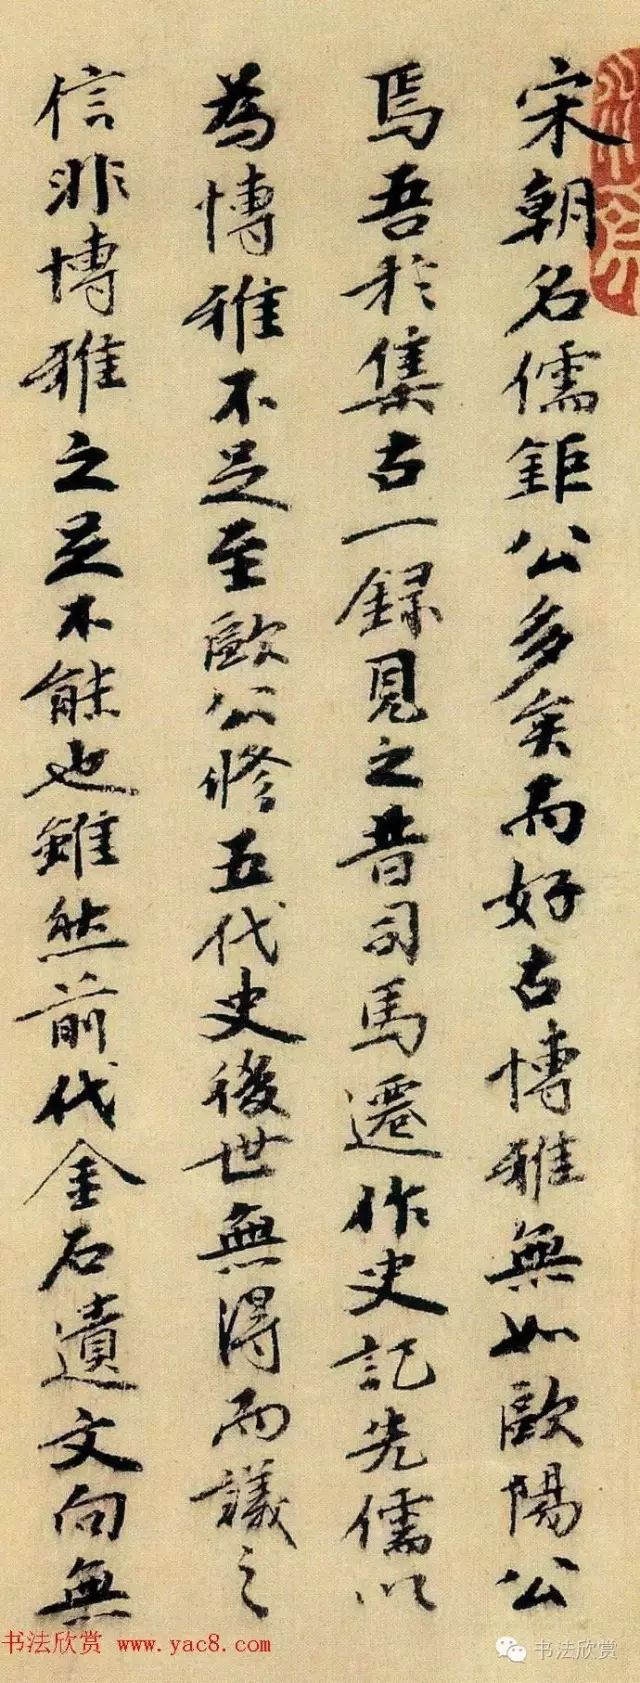 宋朝名儒鉅公多矣而好古博雅無如歐陽公
焉吾於集古一録見之昔司馬遷作史記先儒以
為博雅不足至歐公修五代史後世無得而議之
信非博雅之足不能也雖然前代金石遺文向無
书法欣赏 www.yac8.com
书法欣赏